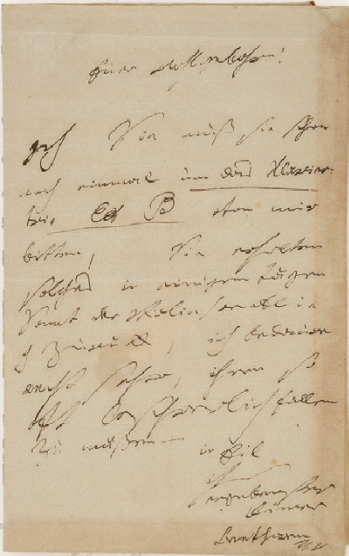 Euer Wohlgebohren!
Ich muß sie schon
noch einmal um das Klavier
trio B von mir
bitten, Sie erhalten
solches in einigen Tägen
Samt der Violinsonate in
g zurück, ich bedaure
recht sehr, ihnen so
oft beschwerlich fallen
zu müßen — in Eil
ihr
ergebenster
Diener
Beethowen